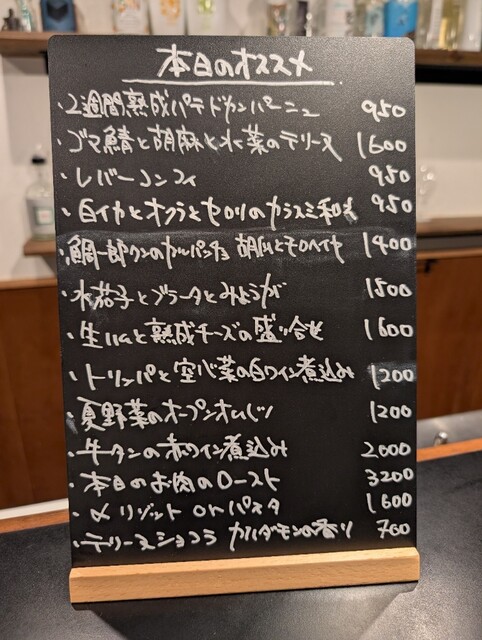 本日のオススメ
・2週間熟成パテドカンパーニュ 950
・ゴマ鯖と胡麻と水菜のテリーヌ 1600
・レバーコンフィ 950
・白イカとオクラとセロリのカラスミ和え 950
・鯛一郎クンのカルパッチョ 胡瓜とモロヘイヤ 1400
・水茄子とブラータとみょうが 1500
・生ハムと熟成チーズの盛り合せ 1600
・トリッパと空心菜の白ワイン煮込み 1200
・夏野菜のオープンオムレツ 1200
・牛タンの赤ワイン煮込み 2000
・本日のお肉のロースト 3200
・〆リゾット orパスタ 1600
・テリーヌショコラ カルダモンの香り 700